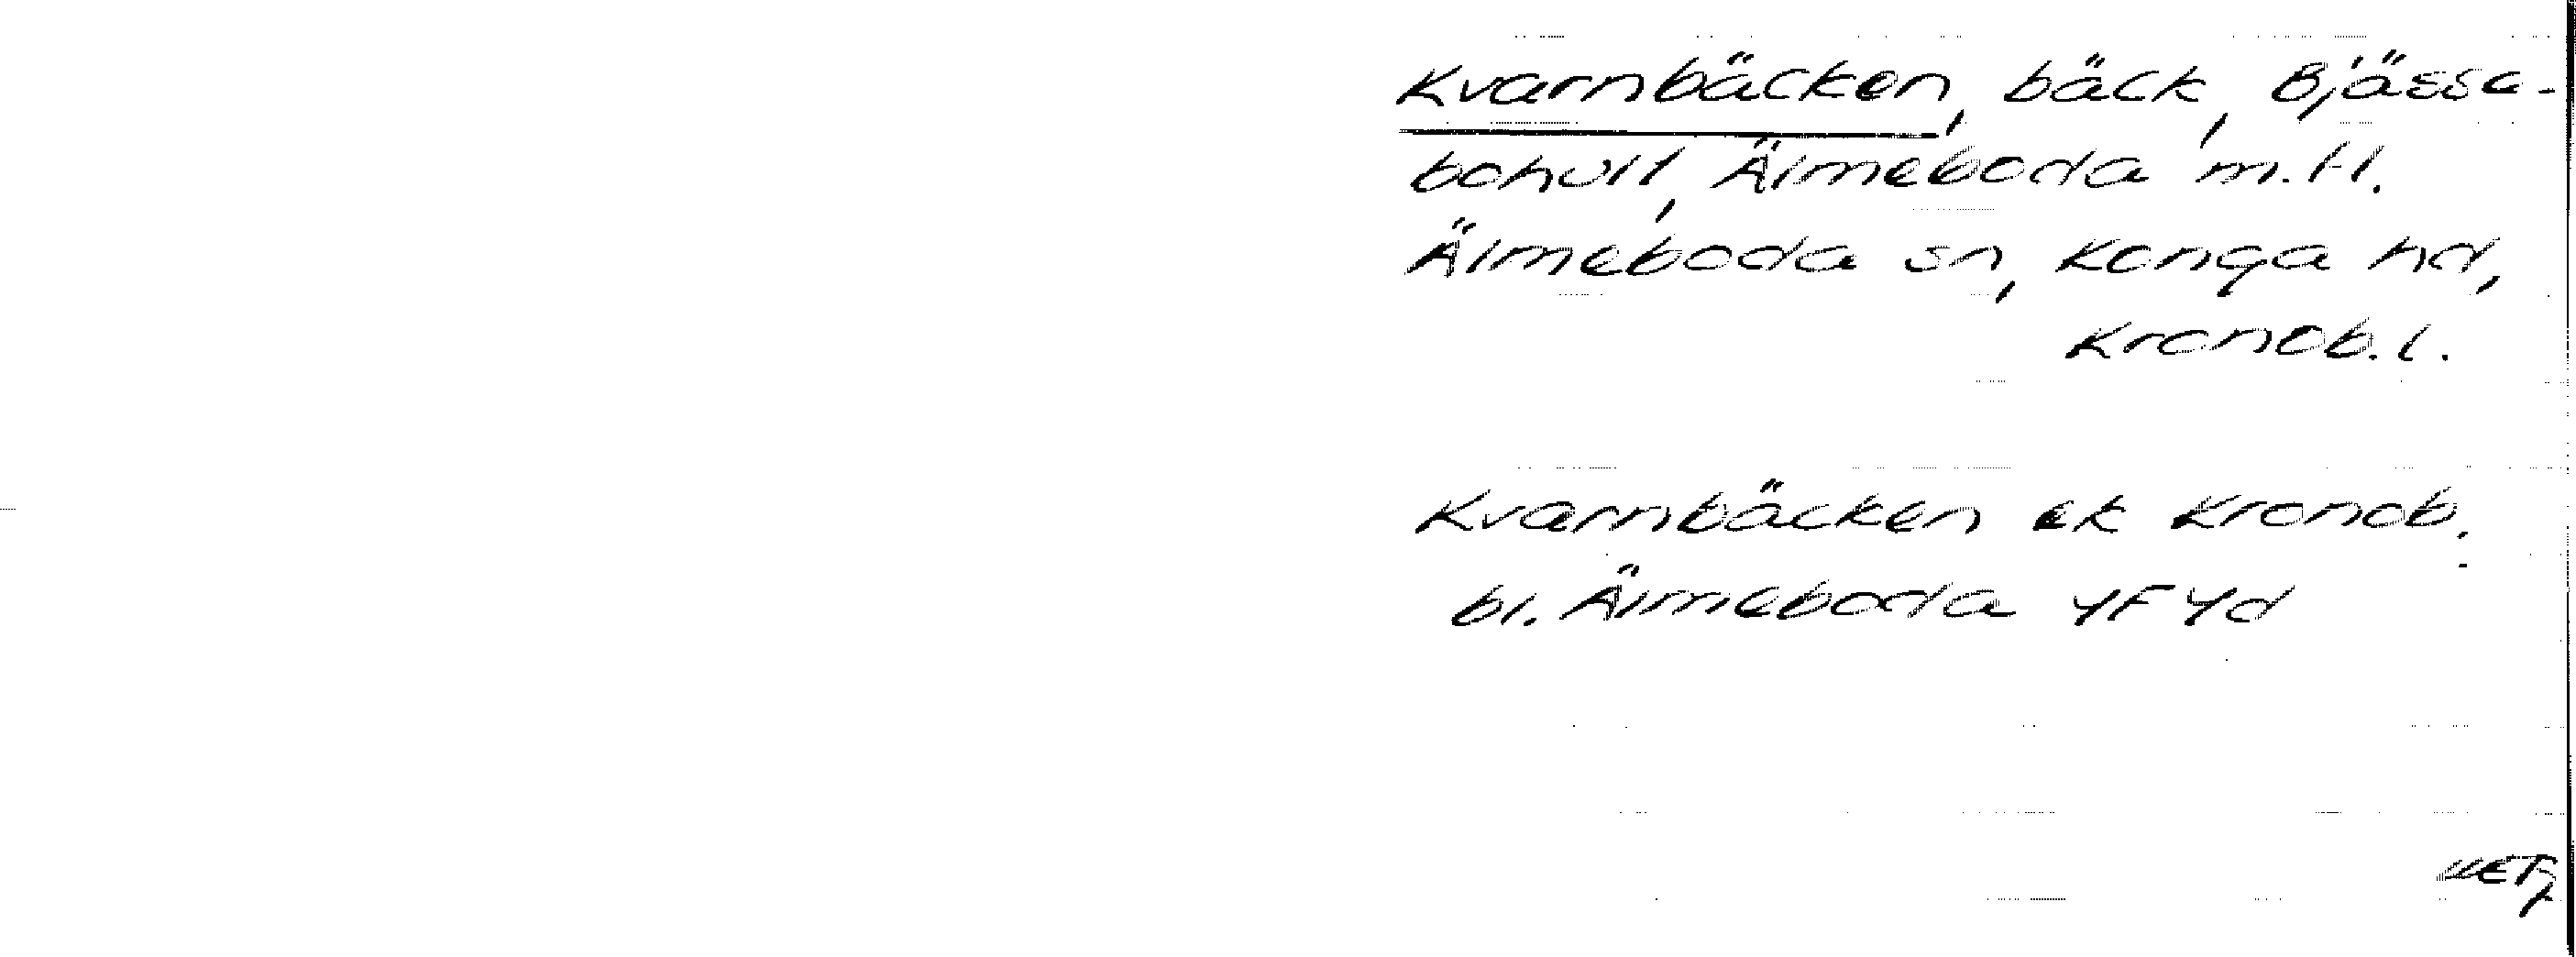 Kvarnbäcken, bäck, Bjässa-
bohult, Älmeboda m.fl.
Älmeboda sn, Konga hd,
Kronob. l.
Kvarnbäcken ek Kronob.
bl. Älmeboda 4F4d